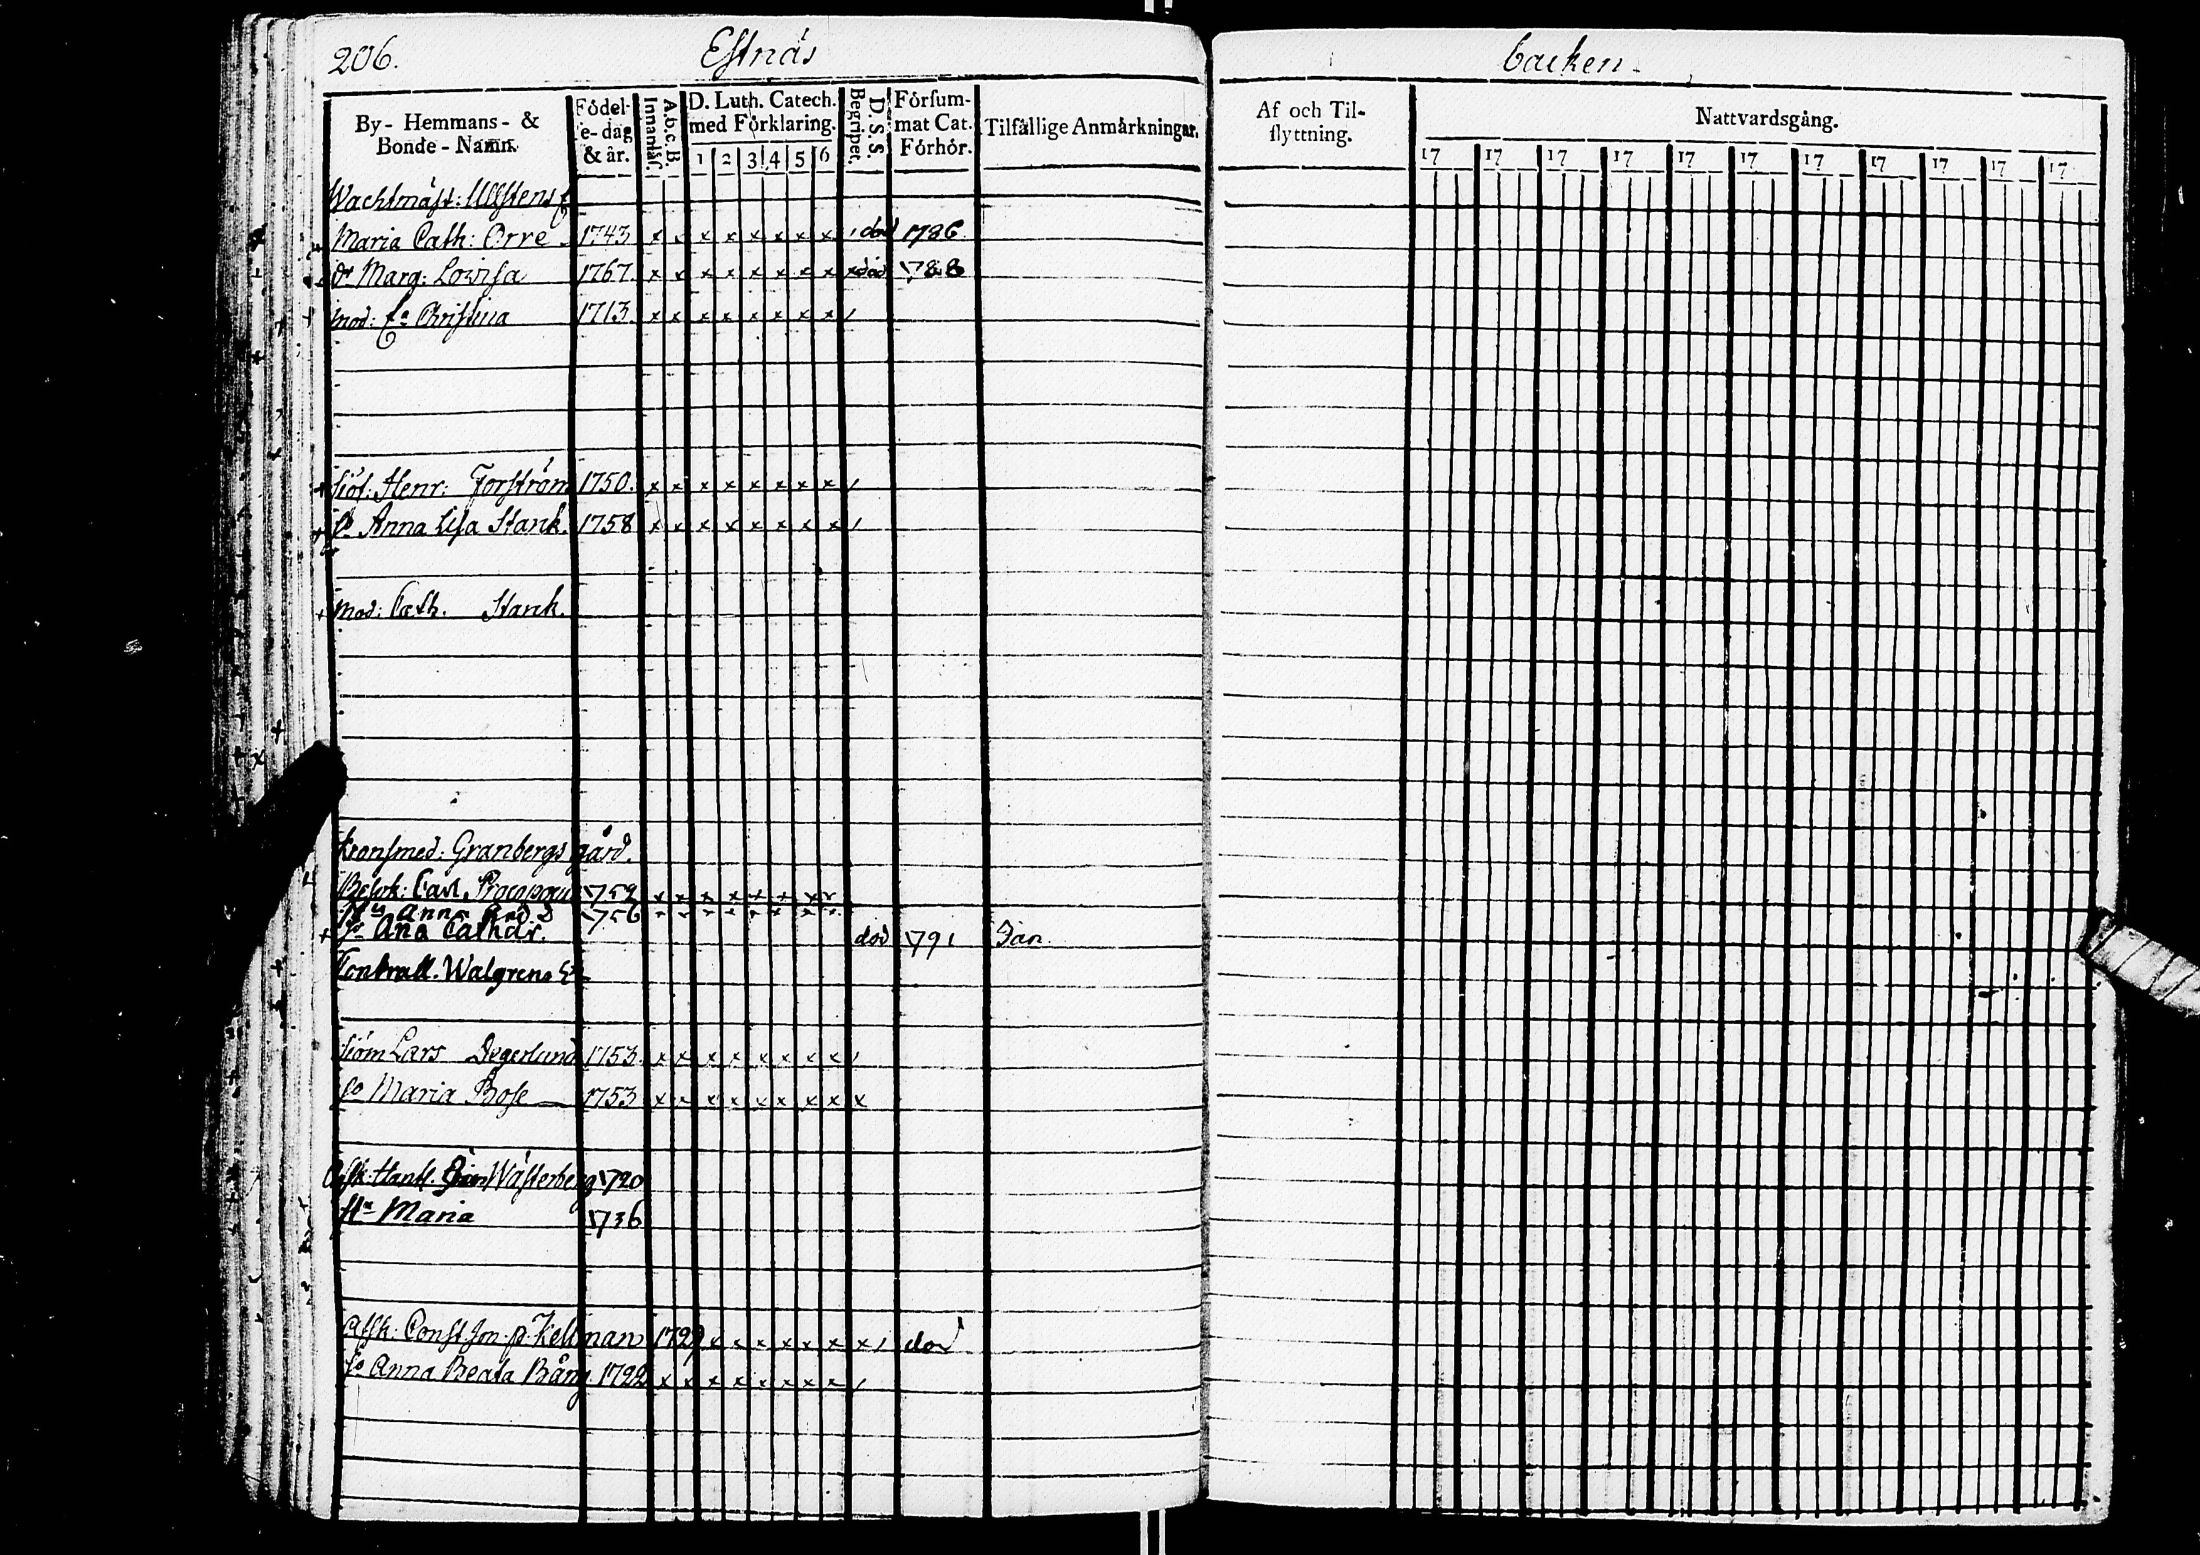 206. Estnäs backen
By- Hemmans- & Bonde-Namn.
Födelse-dag & år.
A.b.c.B. Innanläs.
D. Luth. Catech. med Förklaring.
1 2 3 4 5 6
D. S. S. Begripet.
Försummat Cat. Förhör.
Tilfällige Anmärkningar.
Af och Tilflyttning.
Nattvardsgång.
17 17 17 17 17 17 17 17 17 17 17
Wachtmäst: Ullstens
Maria Cath: Orre 1743 x x x x x x x x död 1786
dr Marg: Lovisa 1767 x x x x x x x x x död 1788
mod: Christina 1713 x x x x x x x x
siöf: Henr: Forström 1750. x x x x x x x x
Anna Lisa Stark. 1758 x x x x x x x x
mod: Cath. Stark.
kronsmed: Granbergs gård.
Besök: Carl 1752 x x x x x x x x
Anna 1756
+ Ana Cathar. död 1791 Jan.
Walgrens
siöm Lars Degerlund 1753. x x x x x x x x
Maria Bose 1753 x x x x x x x x x
Wästerberg 1720
Hu Maria 1736
afsk: Const. Kellman 1729 x x x x x x x död
Anna Beata Bång 1722 x x x x x x x x